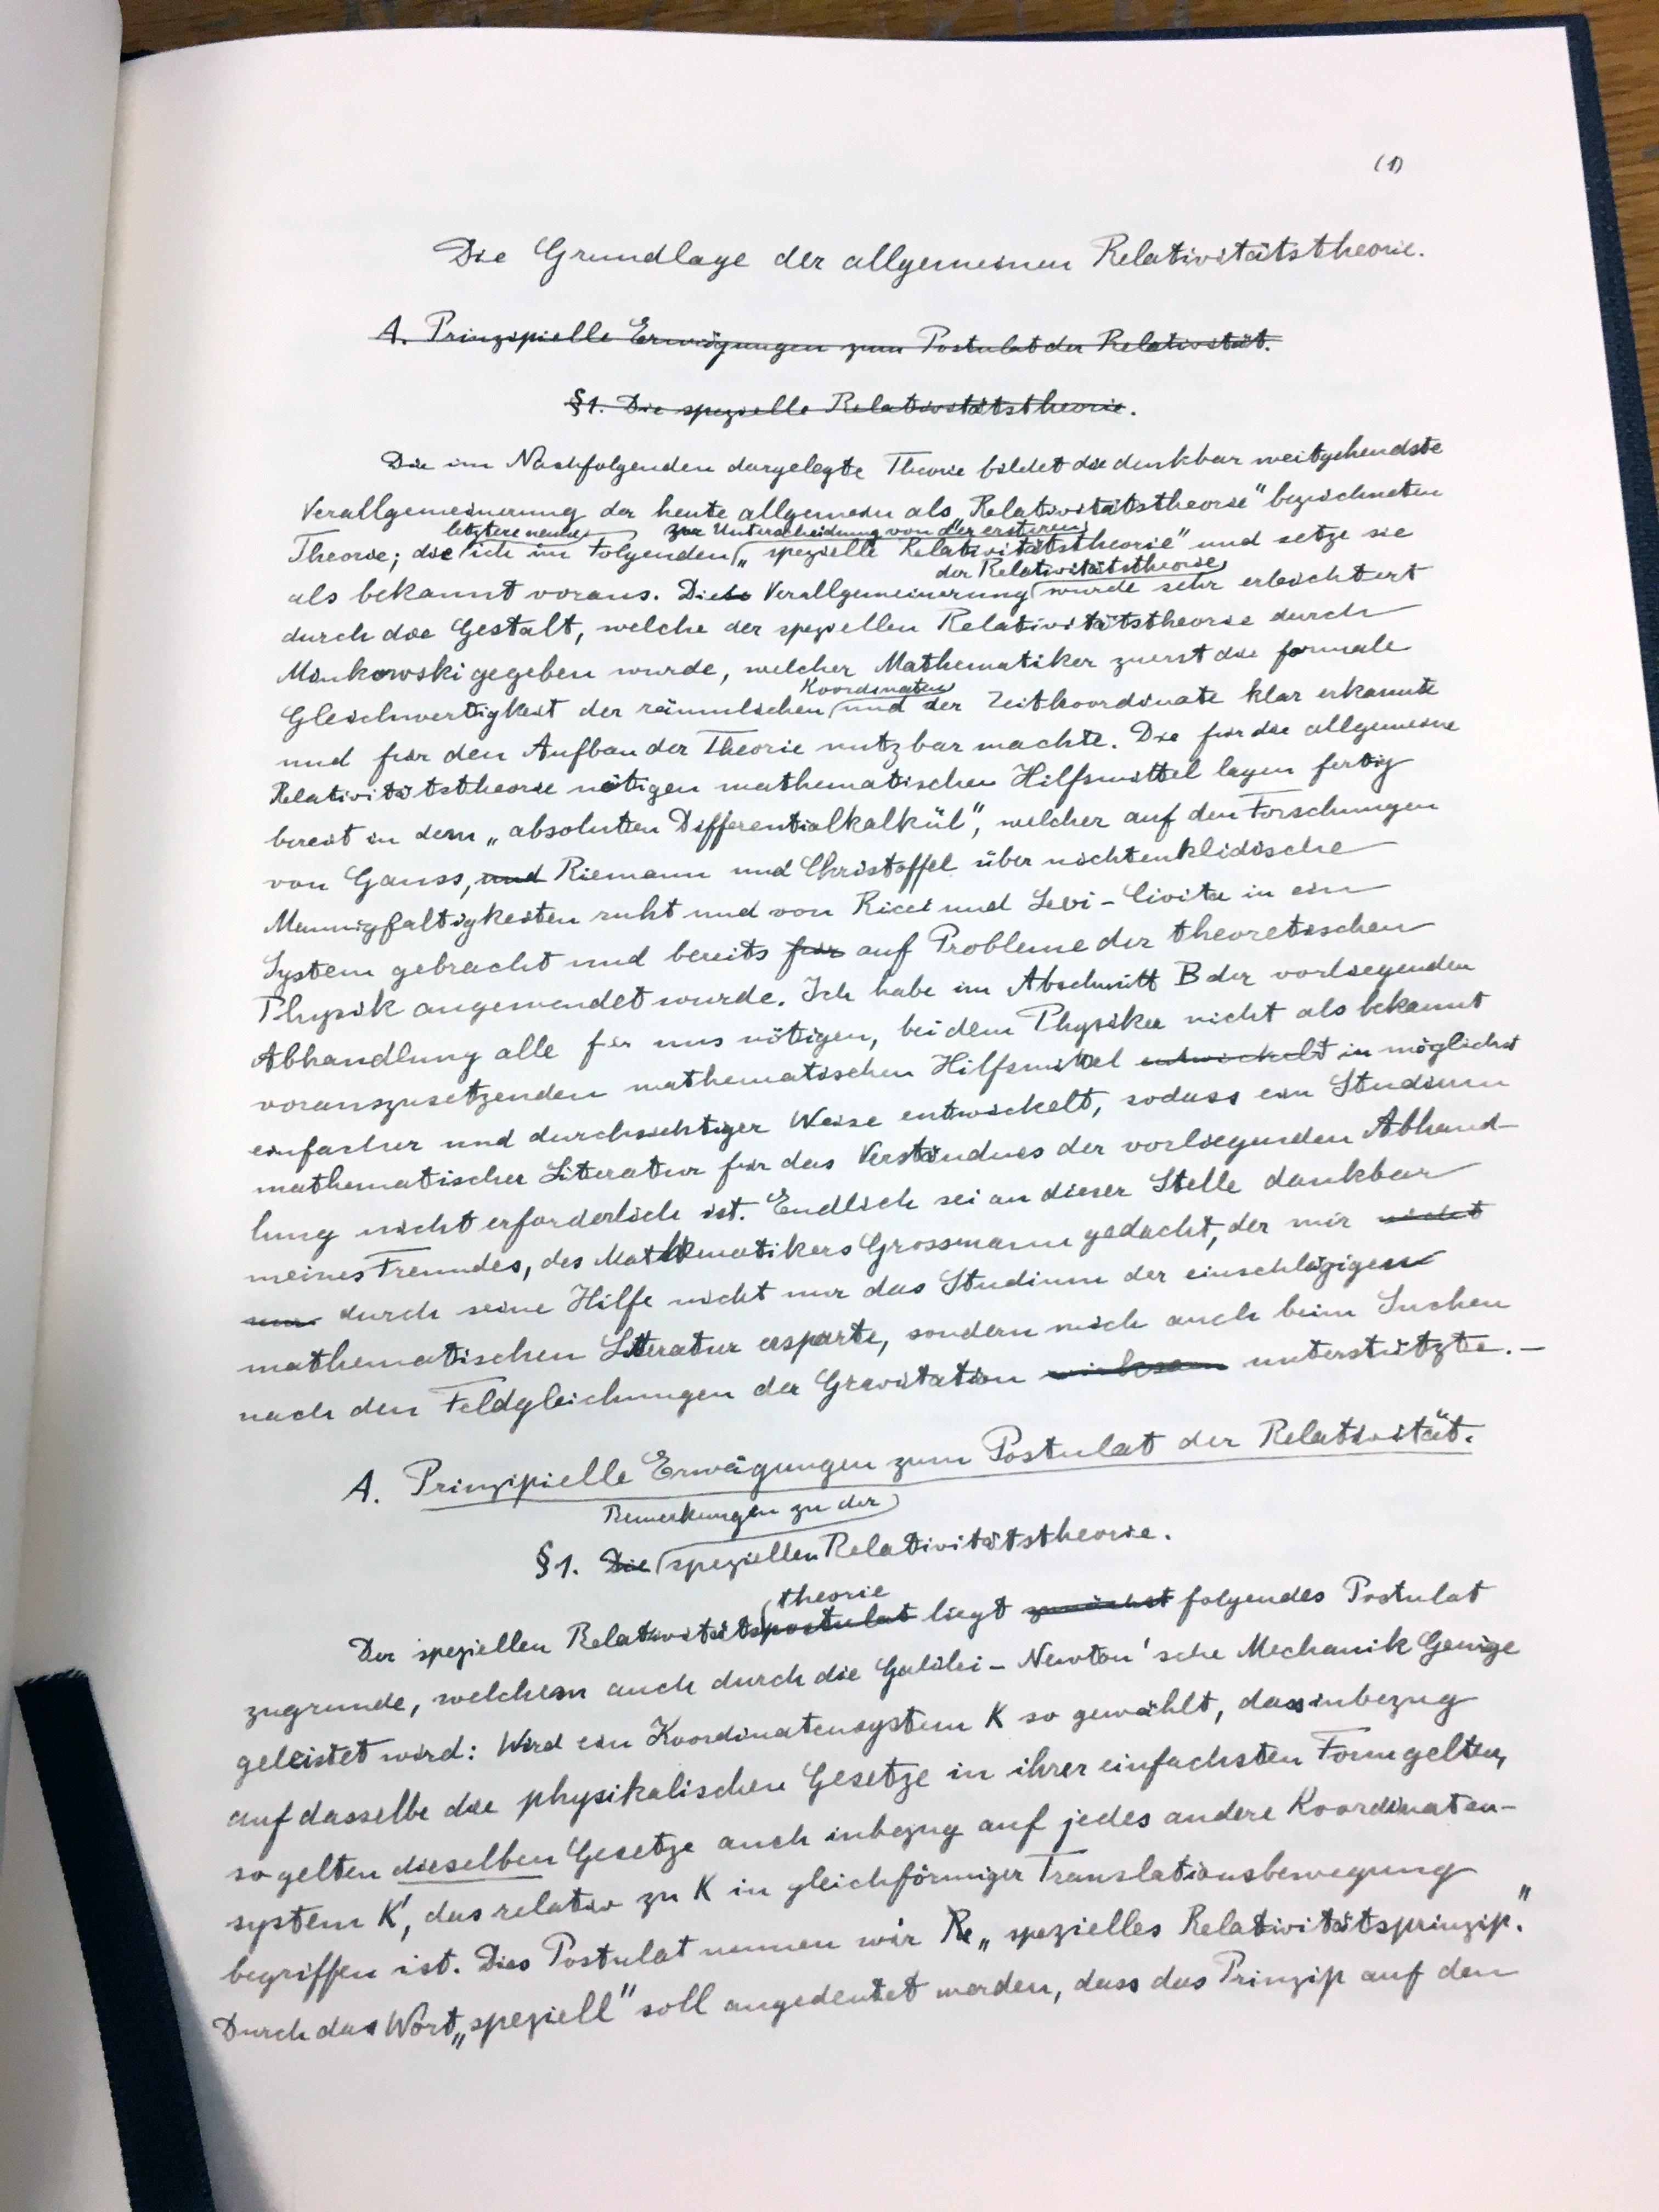 (1)
Die Grundlage der allgemeinen Relativitätstheorie.
A. Prinzipielle Erwägungen zum Postulat der Relativität.
§1. Die spezielle Relativitätstheorie.
Die im Nachfolgenden dargelegte Theorie bildet die denkbar weitgehendste
Verallgemeinerung der heute allgemein als „Relativitätstheorie" bezeichneten
letztere nenne zur Unterscheidung von der ersteren
Theorie; die ich im Folgenden „spezielle Relativitätstheorie" und setze sie
der Relativitätstheorie
als bekannt voraus. Diese Verallgemeinerung wurde sehr erleichtert
durch die Gestalt, welche der speziellen Relativitätstheorie durch
Minkowski gegeben wurde, welcher Mathematiker zuerst die formale
Koordinaten
Gleichwertigkeit der räumlichen und der Zeitkoordinate klar erkannte
und für den Aufbau der Theorie nutzbar machte. Die für die allgemeine
Relativitätstheorie nötigen mathematischen Hilfsmittel lagen fertig
bereit in dem „absoluten Differentialkalkül", welcher auf den Forschungen
von Gauss, und Riemann und Christoffel über nichteuklidische
Mannigfaltigkeiten ruht und von Ricci und Levi-Civita in ein
System gebracht und bereits für auf Probleme der theoretischen
Physik angewendet wurde. Ich habe im Abschnitt B der vorliegenden
Abhandlung alle für uns nötigen, bei dem Physiker nicht als bekannt
vorauszusetzenden mathematischen Hilfsmittel entwickelt in möglichst
einfacher und durchsichtiger Weise entwickelt, sodass ein Studium
mathematischer Literatur für das Verständnis der vorliegenden Abhand-
lung nicht erforderlich ist. Endlich sei an dieser Stelle dankbar
meines Freundes, des Mathematikers Grossmann gedacht, der mir nicht
nur durch seine Hilfe nicht nur das Studium der einschlägigen
mathematischen Literatur ersparte, sondern mich auch beim Suchen
nach den Feldgleichungen der Gravitation wirksam unterstützte.—
A. Prinzipielle Erwägungen zum Postulat der Relativität.
Bemerkungen zu der
§1. Die speziellen Relativitätstheorie.
theorie
Der speziellen Relativitätspostulat liegt zunächst folgendes Postulat
zugrunde, welchem auch durch die Galilei-Newton'sche Mechanik Genüge
geleistet wird: Wird ein Koordinatensystem K so gewählt, dass inbezug
auf dasselbe die physikalischen Gesetze in ihrer einfachsten Form gelten,
so gelten dieselben Gesetze auch inbezug auf jedes andere Koordinaten-
system K', das relativ zu K in gleichförmiger Translationsbewegung
begriffen ist. Dies Postulat nennen wir Re „spezielles Relativitätsprinzip."
Durch das Wort „speziell" soll angedeutet werden, dass das Prinzip auf den